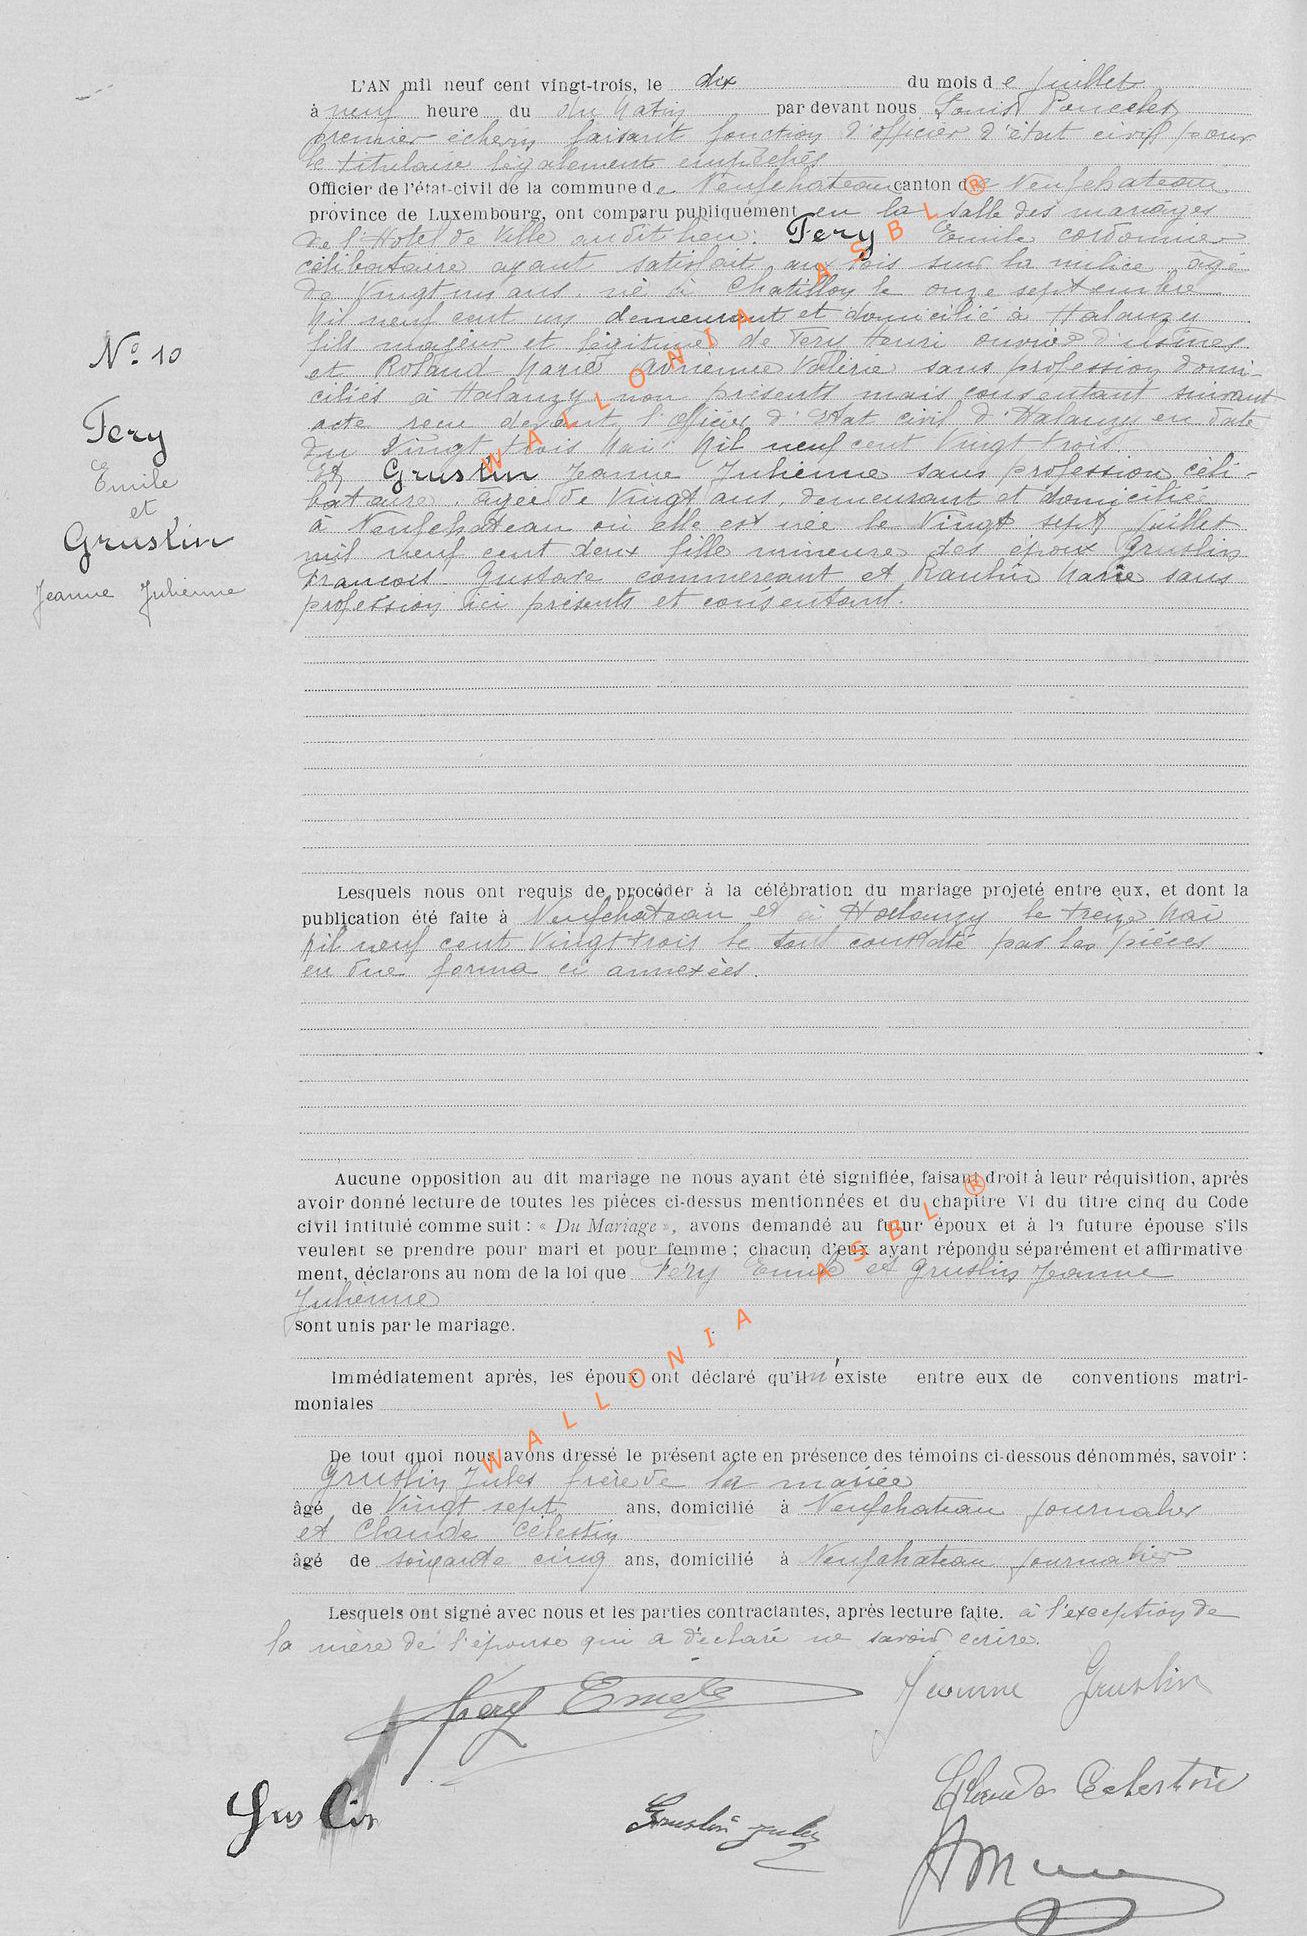 L'AN mil neuf cent vingt-trois, le dix du mois de juillet
à neuf heure du du Matin par devant nous Louis Poncelet
premier échevin faisant fonction d'officier d'état civil pour
le titulaire légalement empêchés
Officier de l'état-civil de la commune de Neufchateau canton de Neufchateau
province de Luxembourg, ont comparu publiquement en la salle des mariages
de l'Hotel de Ville audit lieu: Fery Emile cordonnier
célibataire ayant satisfait aux lois sur la milice agé
de Vingt un ans. né à Chatillon le onze septembre
Mil neuf cent un demeurant et domicilié à Halanzy
fils majeur et légitime de Fery Henri ouvrier d'usines
et Roland Marie Valérie sans profession domi-
ciliés à Halanzy non présents mais consentant suivant
acte recu devant l'officier d'Etat civil d'Halanzy en date
du Vingt trois Mai Mil neuf cent Vingt trois
Et Gruslin Jeanne Julienne sans profession céli-
bataire, agée de Vingt ans, demeurant et domiciliée
à Neufchateau où elle est née le Vingt sept juillet
mil neuf cent deux fille mineure des époux Gruslin
Francois Gustave commercant et Marie sans
profession ici présents et consentant.
N° 10
Fery
Emile
et
Gruslin
Jeanne Julienne
Lesquels nous ont requis de procéder à la célébration du mariage projeté entre eux, et dont la
publication été faite à Neufchateau et à Halanzy le treize Mai
Mil neuf cent Vingt trois le tout constaté par les pièces
en due forme ci annexées.
Aucune opposition au dit mariage ne nous ayant été signifiée, faisant droit à leur réquisition, après
avoir donné lecture de toutes les pièces ci-dessus mentionnées et du chapitre VI du titre cinq du Code
civil intitulé comme suit : « Du Mariage », avons demandé au futur époux et à la future épouse s'ils
veulent se prendre pour mari et pour femme ; chacun d'eux ayant répondu séparément et affirmative
ment, déclarons au nom de la loi que Fery Emile et Gruslin Jeanne
Julienne
sont unis par le mariage.
Immédiatement après, les époux ont déclaré qu'il n'existe entre eux de conventions matri-
moniales
De tout quoi nous avons dressé le présent acte en présence des témoins ci-dessous dénommés, savoir :
Gruslin Jules frère de la mariée
âgé de Vingt sept ans, domicilié à Neufchateau journalier
et Claude Célestin
âgé de soixante cinq ans, domicilié à Neufchateau journalier
Lesquels ont signé avec nous et les parties contractantes, après lecture faite. à l'exception de
la mère de l'épouse qui a déclaré ne savoir ecrire.
Fery Emile
Jeanne Gruslin
Claude Celestin
Gruslin
Gruslin Jules
WALLONIA ASBL ®
WALLONIA ASBL ®